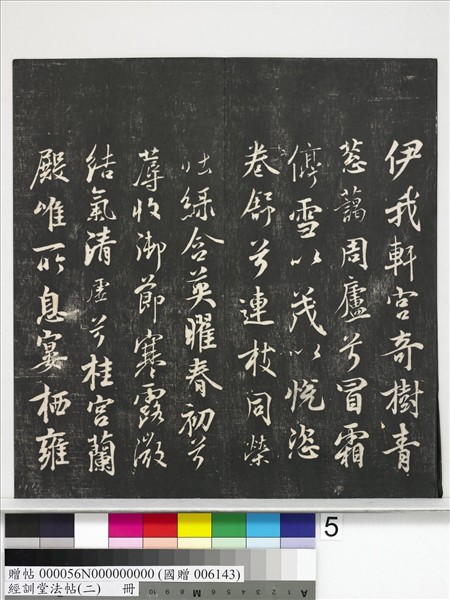 伊我軒宮奇樹青
蔥藹周廬兮冒霜
停雪以茂以悅恣
卷舒兮連枝同榮
吐綠含英曜春初兮
蓐收御節寒露微
結氣清虛兮桂宮蘭
殿唯所息宴栖雍
5
贈帖 000056N000000000 (國贈 006143)
經訓堂法帖(二) 冊